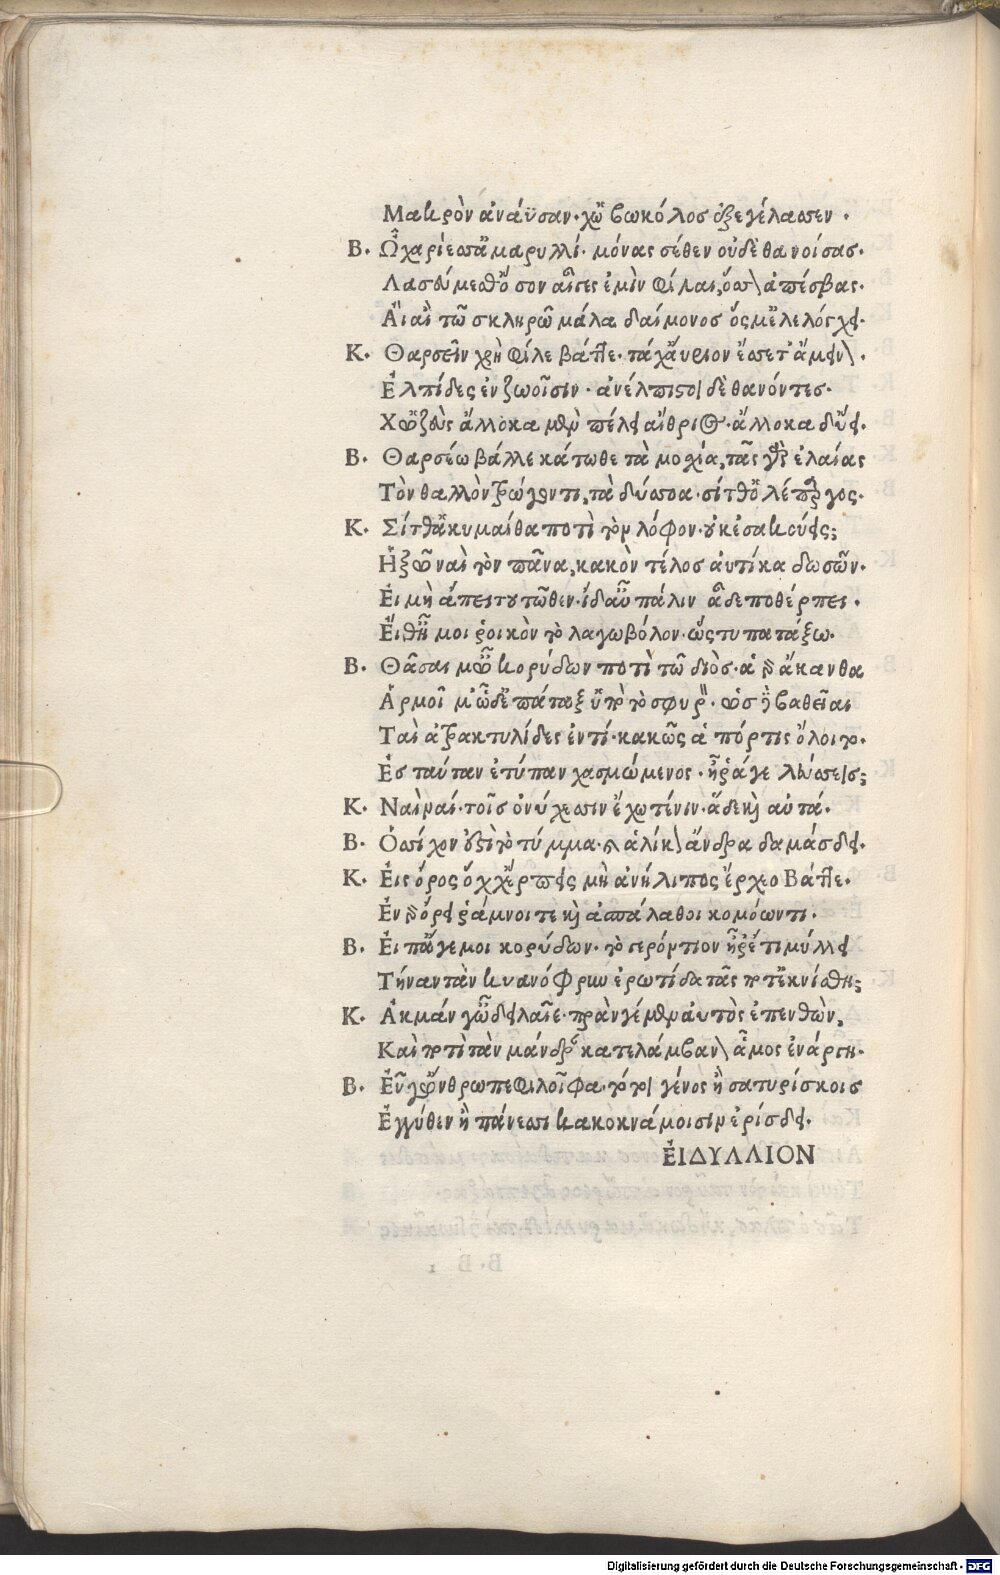 Μακρὸν ἀνάϋσαν· χὢ βωκόλοσ ἐξεγέλασσεν .
Β. Ὦ χαρίεσσ' ἀμαρυλλί· μόνας σέθεν οὐδὲ θανοίσας.
Λασεύμεσθ' ὅσον αἶγες ἐμὶν φίλαι, ὅσσον ἀπέσβας.
Αἲ αἲ τῶ σκληρῶ μάλα δαίμονοσ ὅς με λελόγχει.
Κ. Θαρσεῖν χρὴ φίλε βάττε· τάχ' αὔριον ἔσσετ' ἄμεινον .
Ἐλπίδες ἐν ζωοῖσιν · ἀνέλπιστοι δὲ θανόντες.
Χὠ ζεὺς ἄλλοκα μὲν πέλει αἴθριος· ἄλλοκα δ' ὕει.
Β. Θαρσέω βάλλε κάτωθε τὰ μοσχία, τᾶς γὰρ ἐλαίας
Τὸν θαλλὸν τρώγοντι, τὰ δύσσοα· σίτθ' ὁ λέπαργος.
Κ. Σίτθ' ἁ κυμαίθα ποτὶ τὸν λόφον· οὐκ ἐσακούεις;
Ἡξῶ ναὶ τὸν πᾶνα, κακὸν τέλοσ αὐτίκα δωσῶν.
Εἰ μὴ ἄπει τουτῶθεν· ἴδ' αὖ πάλιν ἅδε ποθέρπει .
Εἴθ' ἦν μοι ῥοικὸν τὸ λαγωβόλον· ὥς τυ πατάξω.
Β. Θᾶσαι μ' ὦ κορύδων ποτὶ τῶ διὸς· ἁ γὰρ ἄκανθα
Ἁρμοῖ μ' ὧδ' ἐπάταξ' ὑπὸ τὸ σφυρόν· ὡσ δὲ βαθεῖαι
Ταὶ ἀτρακτυλίδες ἐντί· κακῶς ἁ πόρτις ὄλοιτο.
Ἐσ ταύταν ἐτύπαν χασμώμενος· ἦ ῥάγε λεύσσεις;
Κ. Ναὶ ναί· τοῖσ ὀνύχεσσιν ἔχω τένιν· ἅδε καὶ αὐτά.
Β. Ὁσσίχον ἐστὶ τὸ τύμμα· καὶ ἁλίκον ἄνδρα δαμάσδει.
Κ. Εἰς ὄρος ὅχχ' ἕρπεις μὴ ἀνήλιπος ἔρχεο Βάττε.
Ἐν γὰρ ὄρει ῥάμνοι τε καὶ ἀσπάλαθοι κομόωντι .
Β. Εἴ π' ἄγε μοι κορύδων· τὸ γερόντιον ἦ ῥ' ἔτι μύλλει
Τήναν τὰν κυανόφρυν ἐρωτίδα τᾶς ποτ' ἐκνίσθη;
Κ. Ἀκμάν γ' ὦ δείλαιε· πρὰν γέ μὲν αὐτὸς ἐπενθὼν,
Καὶ ποτὶ τὰν μάνδραν κατελάμβανον ἇμος ἐνάργη.
Β. Εὖ γ' ὤνθρωπε φιλοῖφα· τό τοι γένος ἢ σατυρίσκοισ
Ἐγγύθεν ἢ πάνεσσι κακοκνάμοισιν ἐρίσδει.
ἘΙΔΥΛΛΙΟΝ
Digitalisierung gefördert durch die Deutsche Forschungsgemeinschaft - DFG